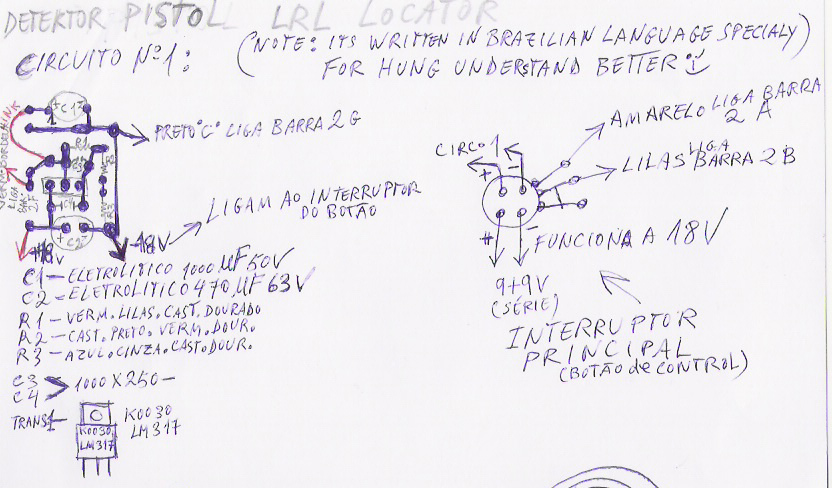 DETEKTOR PISTOL LRL LOCATOR
CIRCUITO Nº1:
(NOTE: ITS WRITTEN IN BRAZILIAN LANGUAGE SPECIALY)
FOR HUNG UNDERSTAND BETTER
C1
PRETO "C" LIGA BARRA 2G
R1
C2
-18V
LIGAM AO INTERRUPTOR
DO BOTÃO
C1 - ELETROLITICO 1000 µF 50V
C2 - ELETROLITICO 470 µF 63V
R1 - VERM. LILAS. CAST. DOURADO
R2 - CAST. PRETO. VERM. DOUR.
R3 - AZUL. CINZA. CAST. DOUR.
C3
C4
1000 X 250 -
TRANS1 -
K0030
LM317
K0030
LM317
AMARELO LIGA BARRA
2 A
CIRCO 1
LILAS LIGA BARRA 2B
+ -
FUNCIONA A 18V
9+9V
(SÉRIE)
INTERRUPTOR
PRINCIPAL
(BOTÃO de CONTROL)